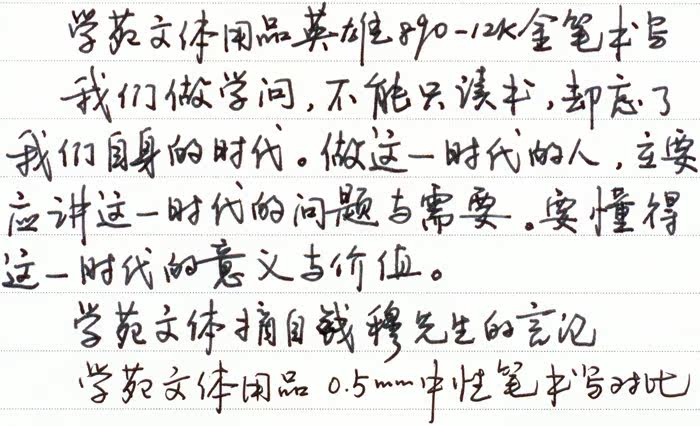 学苑文体用品英雄890-12K金笔书写
我们做学问,不能只读书,却忘了
我们自身的时代。做这一时代的人,主要
应讲这一时代的问题与需要。要懂得
这一时代的意义与价值。
学苑文体摘自钱穆先生的言论
学苑文体用品 0.5mm中性笔书写对比